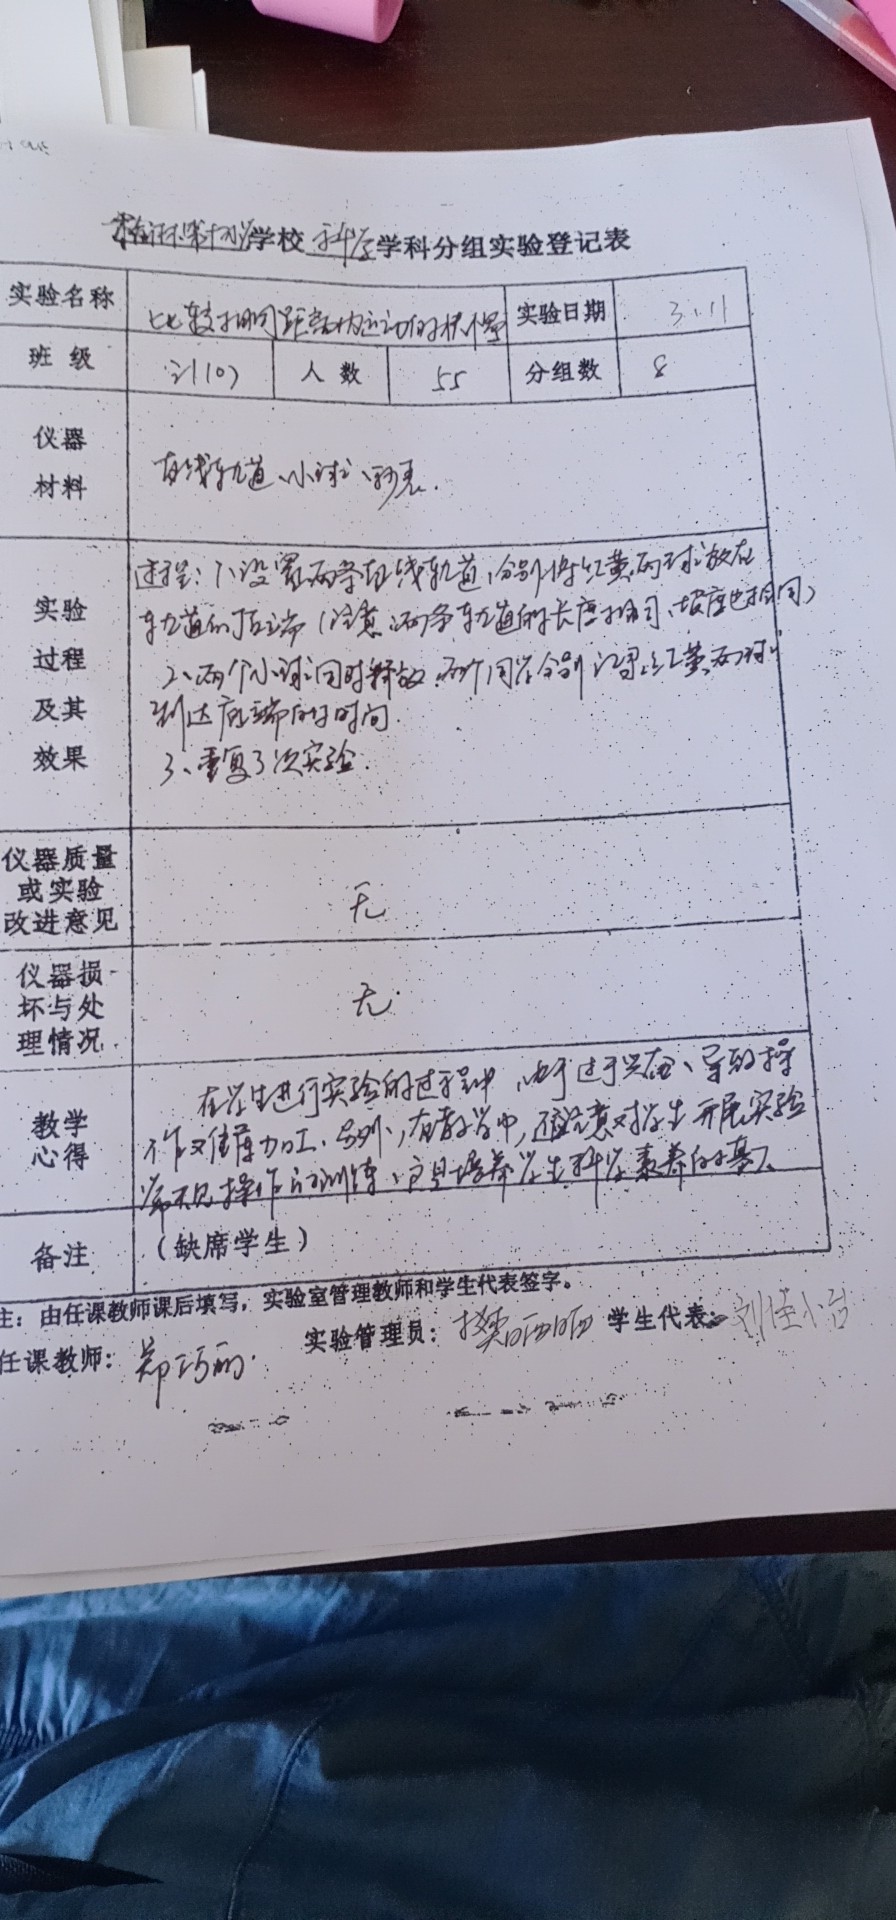 学校科学学科分组实验登记表
实验名称 比较相同距离内运动的快慢 实验日期 3.11
班级 三(10) 人数 55 分组数 8
仪器材料 直线轨道、小球、秒表.
实验过程及其效果
过程: 1、设置两条直线轨道,分别将红黄两球放在
轨道的顶端(注意:两条轨道的长度相同、坡度也相同)
2、两个小球同时释放,两个同学分别记录红黄两球
到达底端的时间.
3、重复3次实验.
仪器质量或实验改进意见 无
仪器损坏与处理情况 无.
教学心得
在学生进行实验的过程中,由于过于兴奋、导致操
作难度加工.另外,在教学中,还应注意对学生开展实验
常规操作的训练、这是培养学生科学素养的基
备注 (缺席学生)
注:由任课教师课后填写,实验室管理教师和学生代表签字。
任课教师: 郑巧丽. 实验管理员: 樊 学生代表: 刘佳